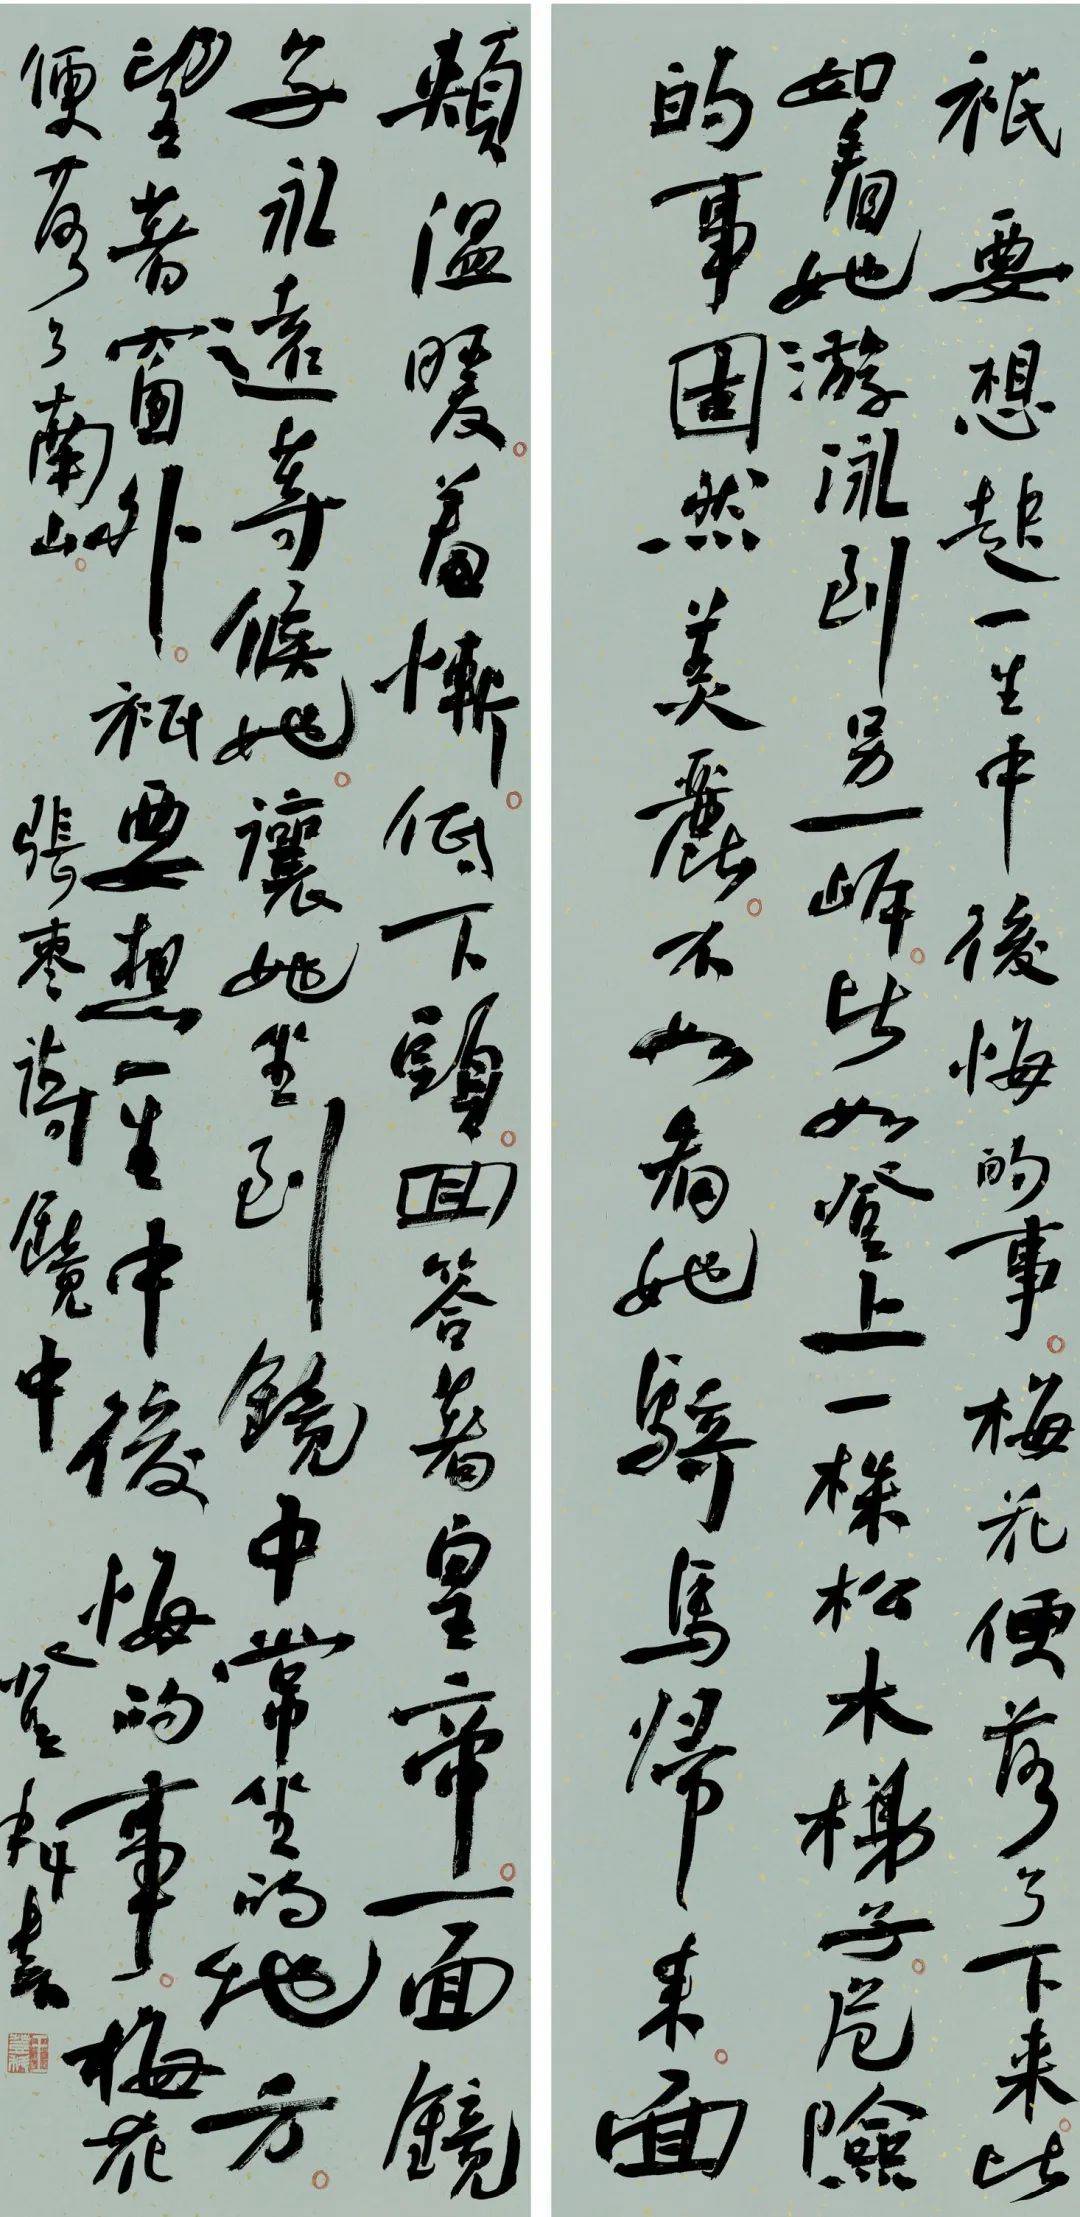 祇要想起一生中後悔的事梅花便落了下来比
如看她游泳到另一岸比如登上一株松木梯子危險
的事固然美麗不如看她騎馬歸来面
頰温暖羞慚低下頭回答著皇帝一面鏡
子永遠等候她讓她坐到鏡中常坐的地方
望著窗外祇要想一生中後悔的事梅花
便落了南山 張棗詩鏡中 登科書